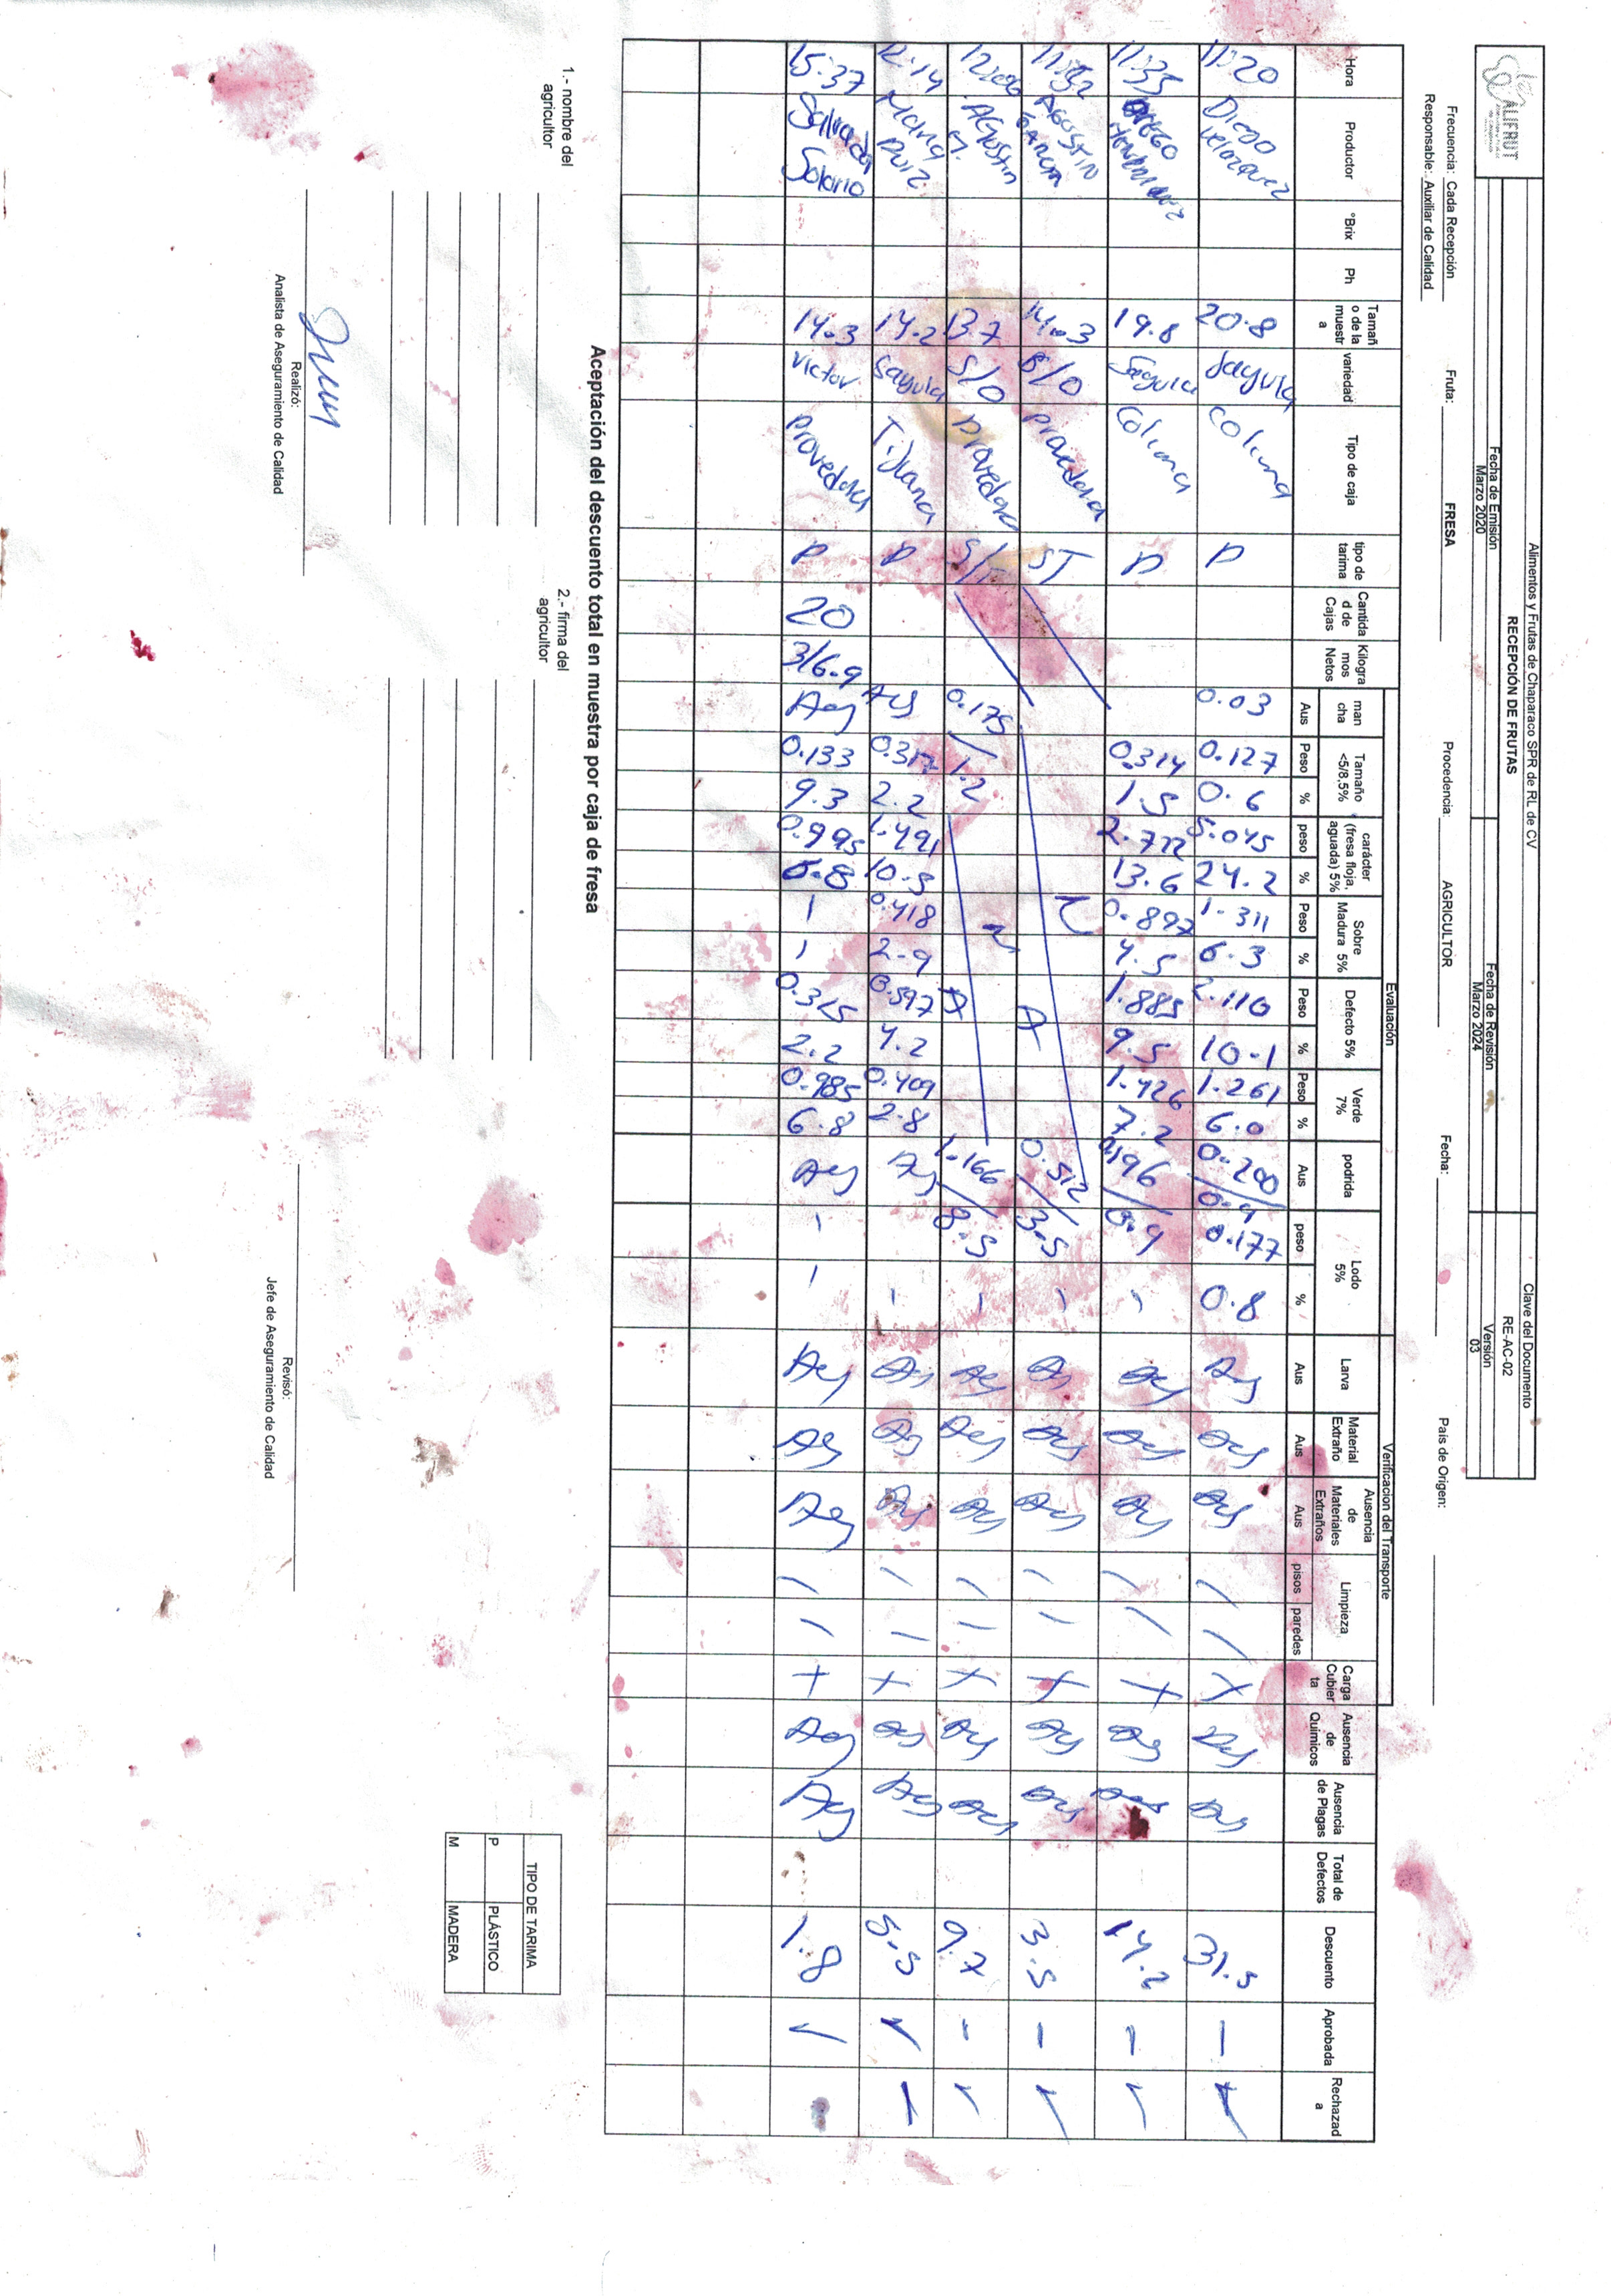 ALIFRUT
Alimentos y Frutas de Chaparaco SPR de RL de CV
RECEPCIÓN DE FRUTAS
Fecha de Emisión
Marzo 2020
Fecha de Revisión
Marzo 2024
Clave del Documento
RE-AC-02
Versión
03
Frecuencia: Cada Recepción Fruta: FRESA Procedencia: AGRICULTOR Fecha: País de Origen:
Responsable: Auxiliar de Calidad
Evaluación
Verificacion del Transporte
Hora Productor °Brix Ph Tamaño de la muestra variedad Tipo de caja tipo de tarima Cantidad de Cajas Kilogramos Netos mancha Tamaño <5/8,5% carácter (fresa floja, aguada) 5% Sobre Madura 5% Defecto 5% Verde 7% podrida Lodo 5% Larva Material Extraño Ausencia de Materiales Extraños Limpieza Carga Cubierta Ausencia de Químicos Ausencia de Plagas Total de Defectos Descuento Aprobada Rechazada
Aus Peso % peso % Peso % Peso % Peso % Aus peso % Aus Aus Aus pisos paredes
11:20 Diego Velazquez 20.8 Sayula Colima P 0.03 0.127 0.6 5.045 24.2 1.311 6.3 10.1 1.261 6.0 0.200/0.9 0.177 0.8 Aus Aus Aus / / X Aus Aus 31.5 – ✓
11:35 Diego 19.8 Sayula Colima P 0.314 1.5 2.722 13.6 0.897 4.5 1.885 9.5 1.426 7.2 0.196/0.9 - Aus Aus Aus / / X Aus Aus 14.2 – ✓
11:52 Agustin Garcia 14.3 S/O Provedora ST N A 0.512/3.5 - Aus Aus Aus / / X Aus Aus 3.5 – ✓
12:06 Agustin 13.7 S/O Provedora 0.175/1.2 N A 1.166/8.5 - Aus Aus Aus / / X Aus Aus 9.7 – ✓
12:14 Maria Ruiz 14.2 Sayula Tijuana P Aus 2.2 1.491 10.5 0.418 2.9 0.597 4.2 0.409 2.8 Aus - Aus Aus Aus / / X Aus Aus 5.5 ✓ –
15:37 Solorio 14.3 Victor Provedora P 20 316.9 Aus 0.133 9.3 0.995 - - 0.325 2.2 0.985 6.8 Aus - - Aus Aus Aus / / X Aus Aus 1.8 ✓
Aceptación del descuento total en muestra por caja de fresa
1.- nombre del agricultor
2.- firma del agricultor
TIPO DE TARIMA
P PLÁSTICO
M MADERA
Realizó:
Analista de Aseguramiento de Calidad
Revisó:
Jefe de Aseguramiento de Calidad